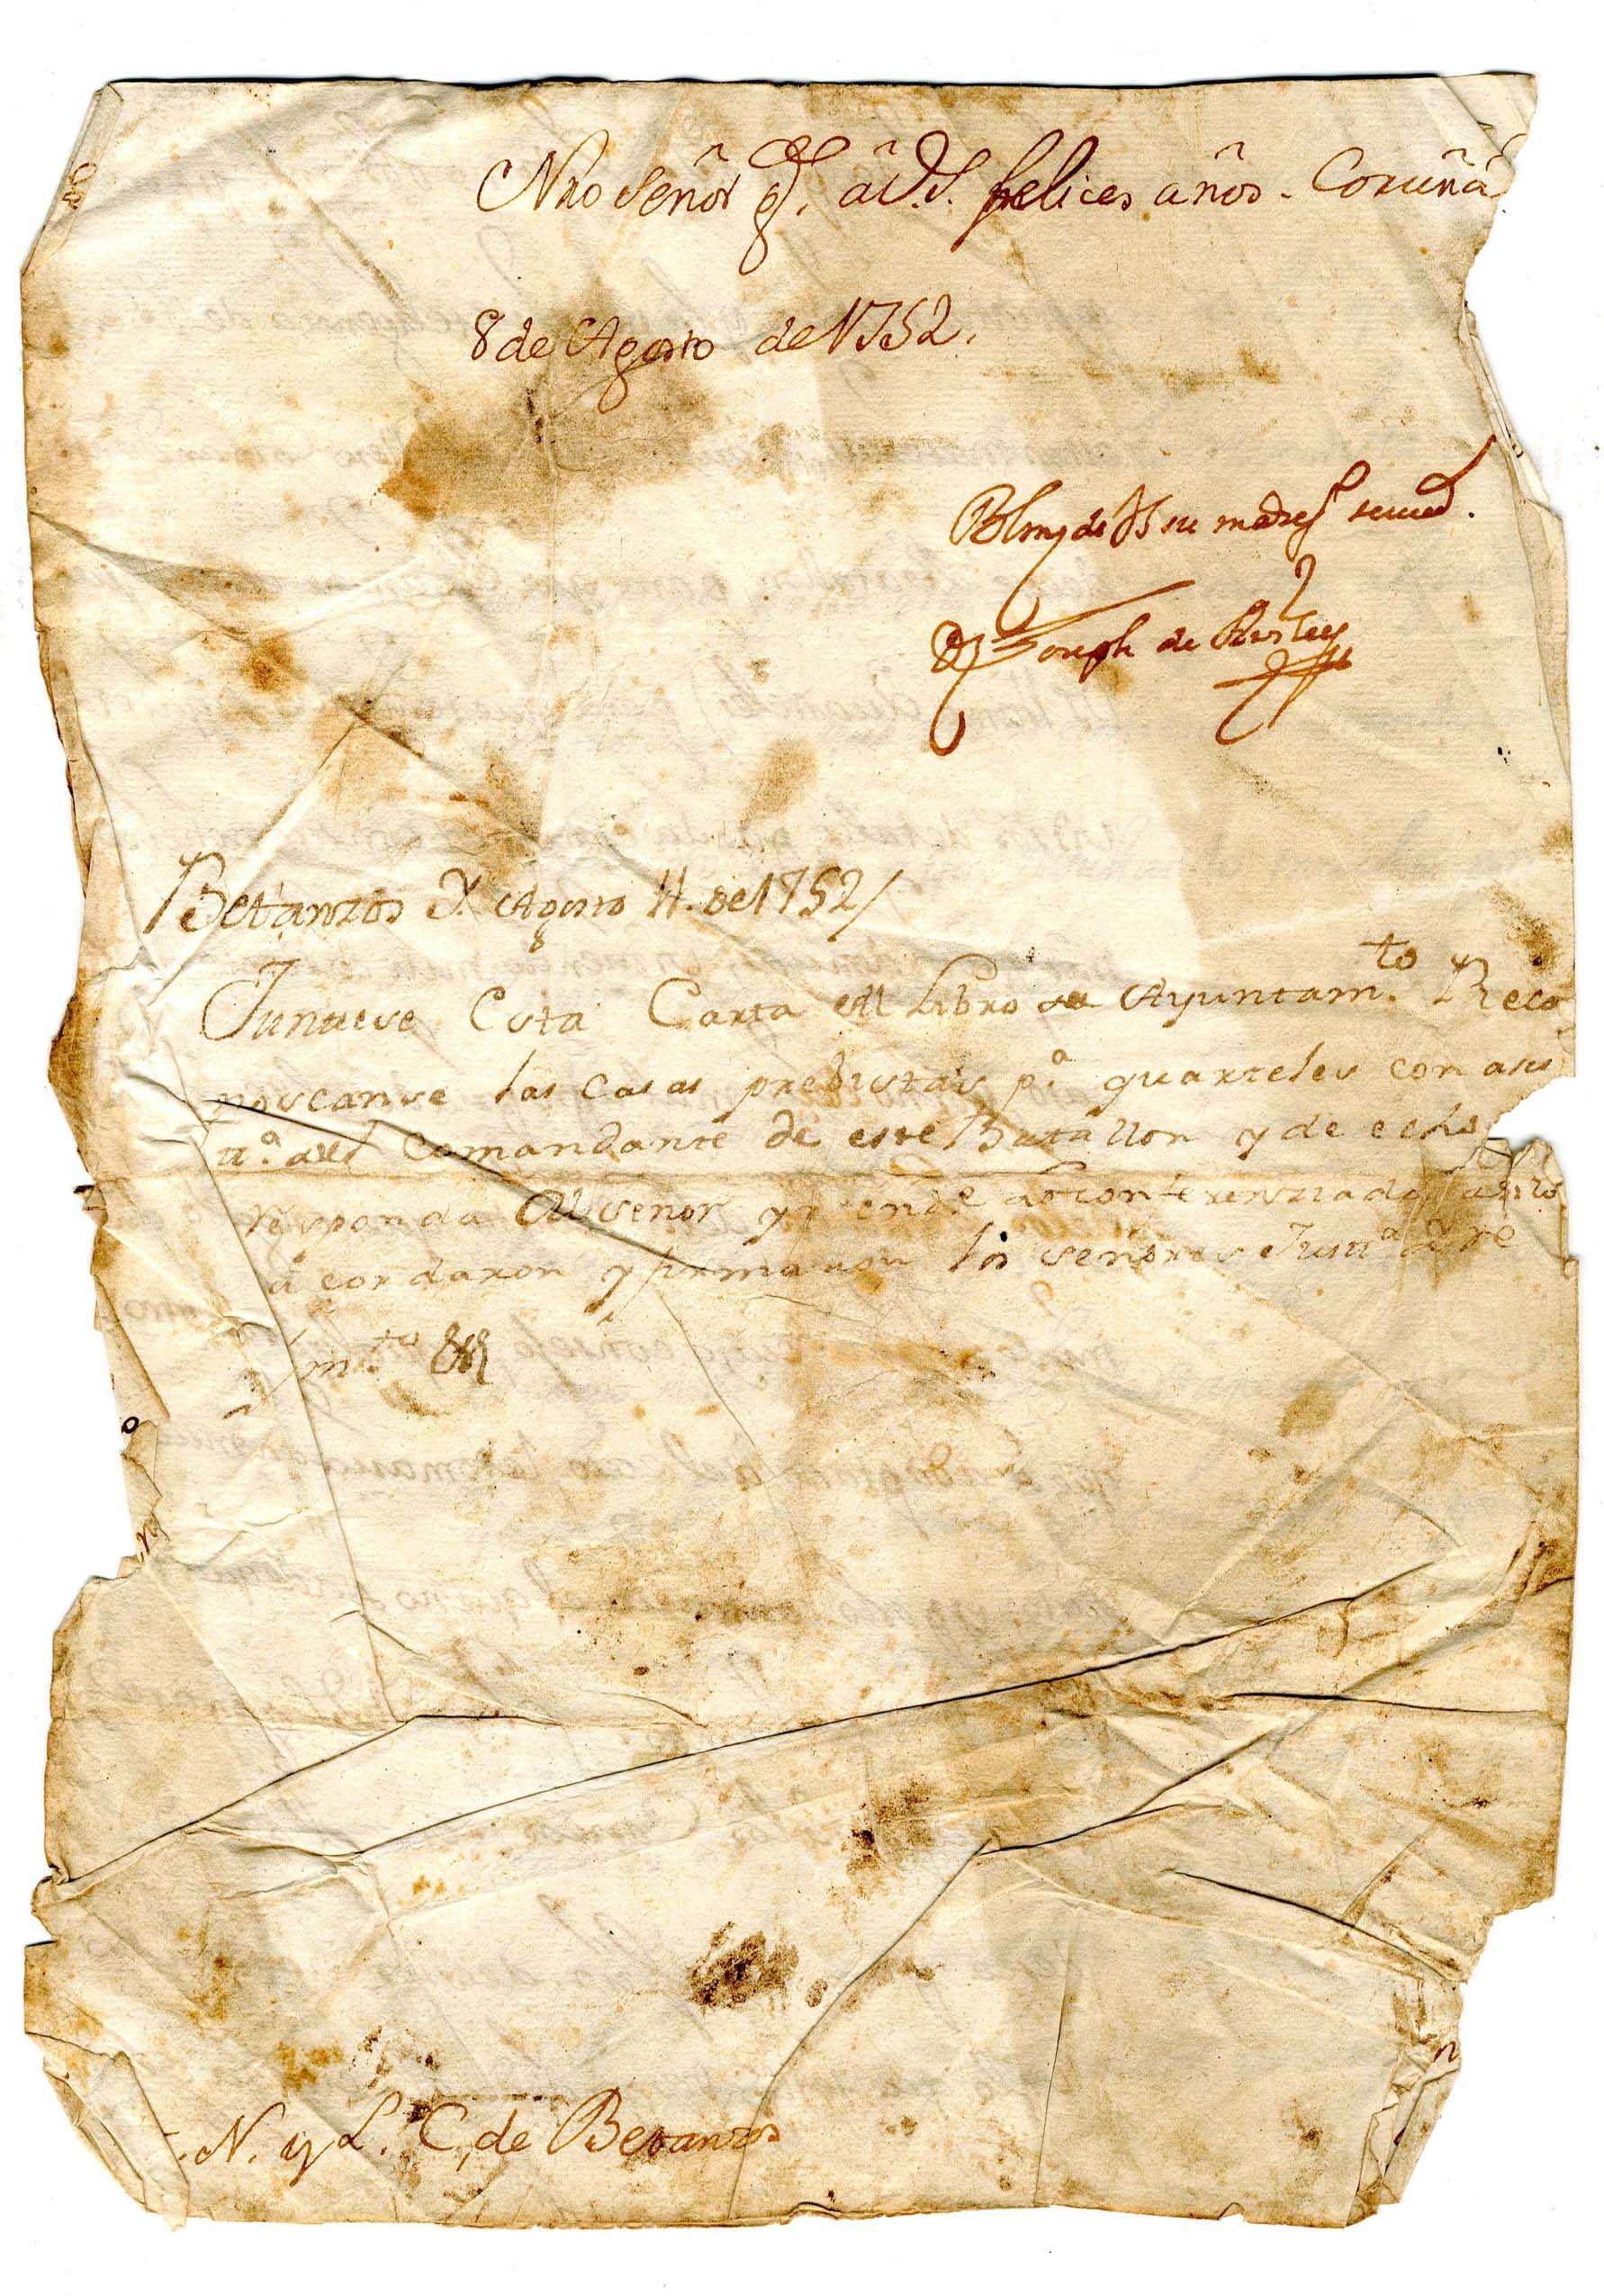 Nro Señor g.e a V.S. felices años - Coruña
8 de Agosto de 1752.
Blm de VS su mas seg.o servid.
Dn Joseph de
Betanzos Y Agosto 11. de 1752/
Juntese Esta Carta Al Libro de Ayuntam.to Reco
noscanse las Casas prebistas p.a quarteles con asis
tt.a del Comandante de este Batallon y de echo
responda Al Señor Yntendente lo conferenziado asi lo
acordaron y firmaron los señores Justt.a Y Re
ximto
M. N. y L. C. de Betanzos